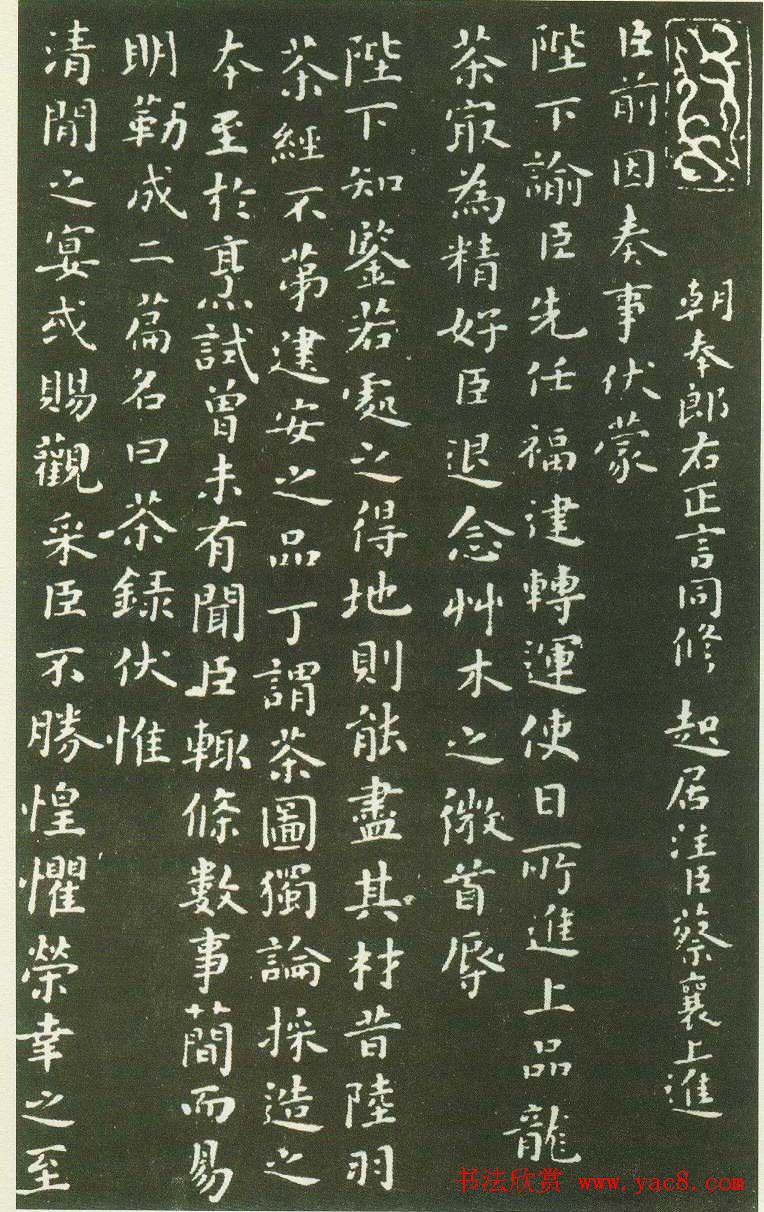 朝奉郎右正言同修起居注臣蔡襄上進
臣前因奏事伏蒙
陛下諭臣先任福建轉運使日所進上品龍
茶冣為精好臣退念艸木之微首辱
陛下知鑒若處之得地則能盡其材昔陸羽
茶經不第建安之品丁謂茶圖獨論採造之
本至於烹試曾未有聞臣輙條數事簡而易
明勒成二篇名曰茶錄伏惟
清閒之宴或賜觀采臣不勝惶懼榮幸之至
书法欣赏 www.yac8.com